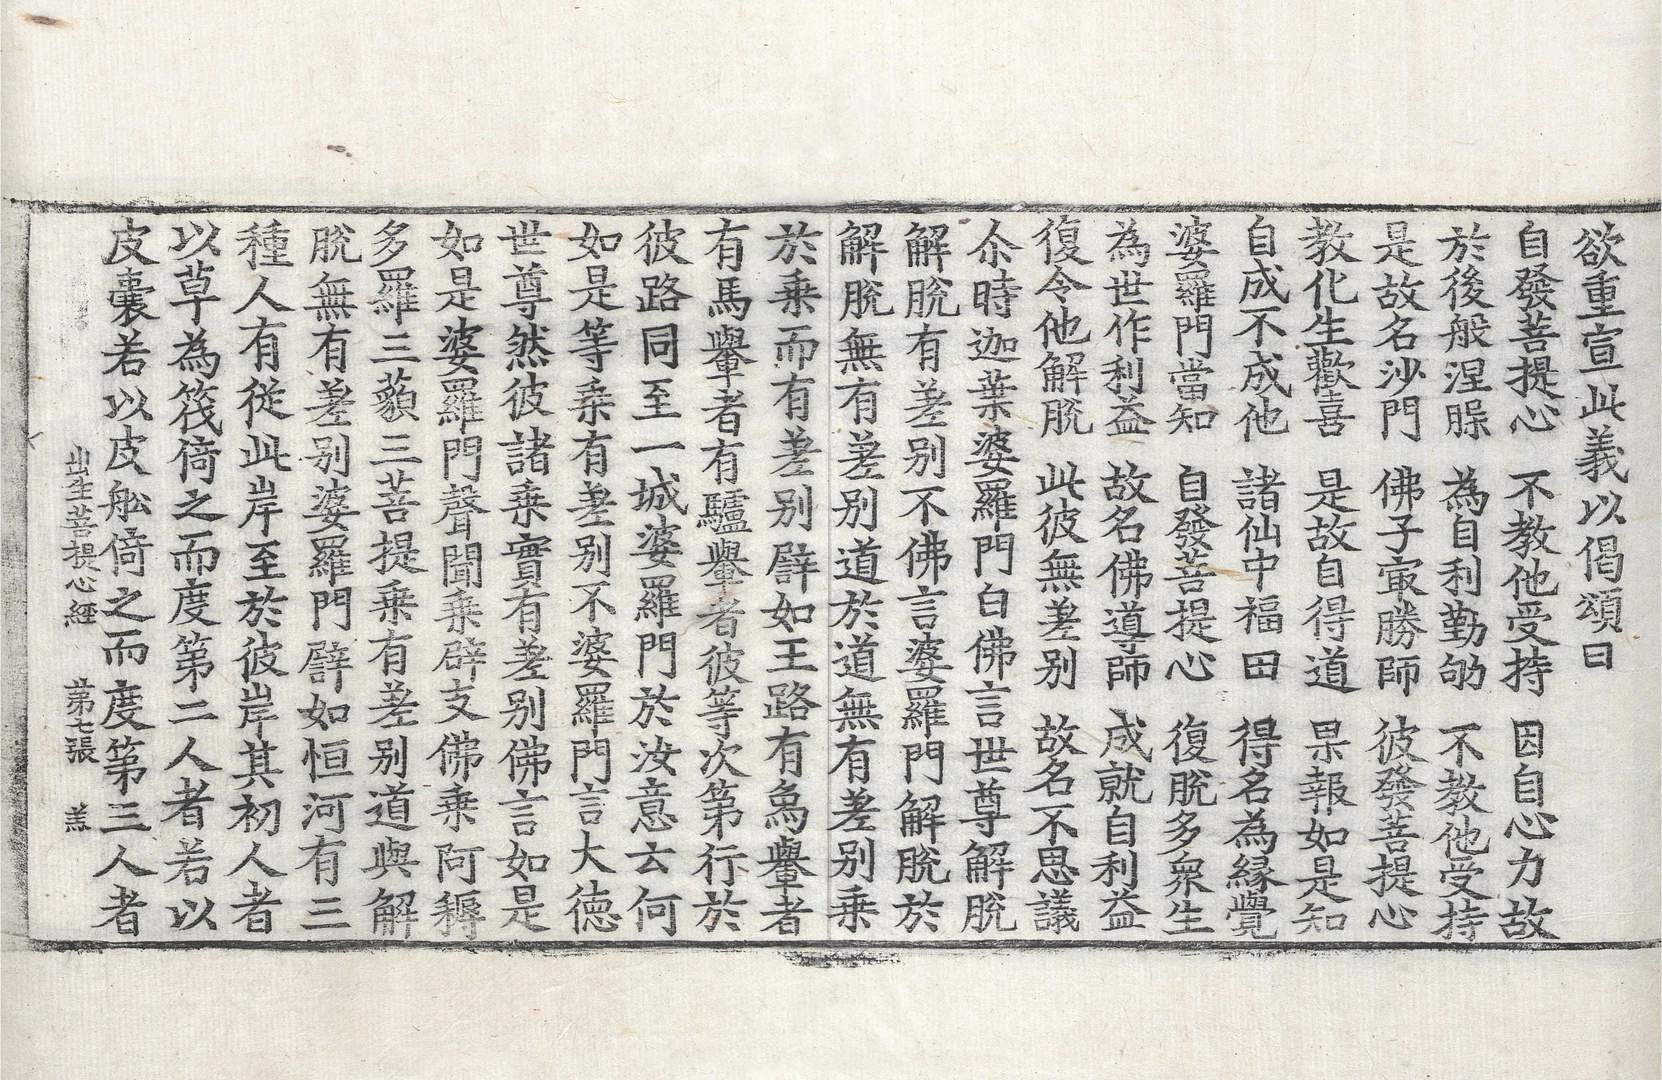 欲重宣此義以偈頌曰
自發菩提心　不教他受持　因自心力故
於後般涅脲　為自利勤劬　不教他受持
是故名沙門　佛子㝡勝師　彼發菩提心
教化生歡喜　是故自得道　果報如是知
自成不成他　諸仙中福田　得名為緣覺
婆羅門當知　自發菩提心　復脫多衆生
為世作利益　故名佛導師　成就自利益
復令他解脫　此彼無差别　故名不思議
尒時迦葉婆羅門白佛言世尊解脫
解脫有差别不佛言婆羅門解脫於
解脫無有差别道於道無有差别乗
於乗而有差别譬如王路有象轝者
有馬轝者有驢轝者彼等次第行於
彼路同至一城婆羅門於汝意云何
如是等乗有差别不婆羅門言大德
世尊然彼諸乗實有差别佛言如是
如是婆羅門聲聞乗辟支佛乗阿耨
多羅三藐三菩提乗有差别道與解
脫無有差别婆羅門譬如恒河有三
種人有從此岸至於彼岸其初人者
以草為筏倚之而度第二人者若以
皮囊若以皮舩倚之而度第三人者
出生菩提心經　第七張　羔